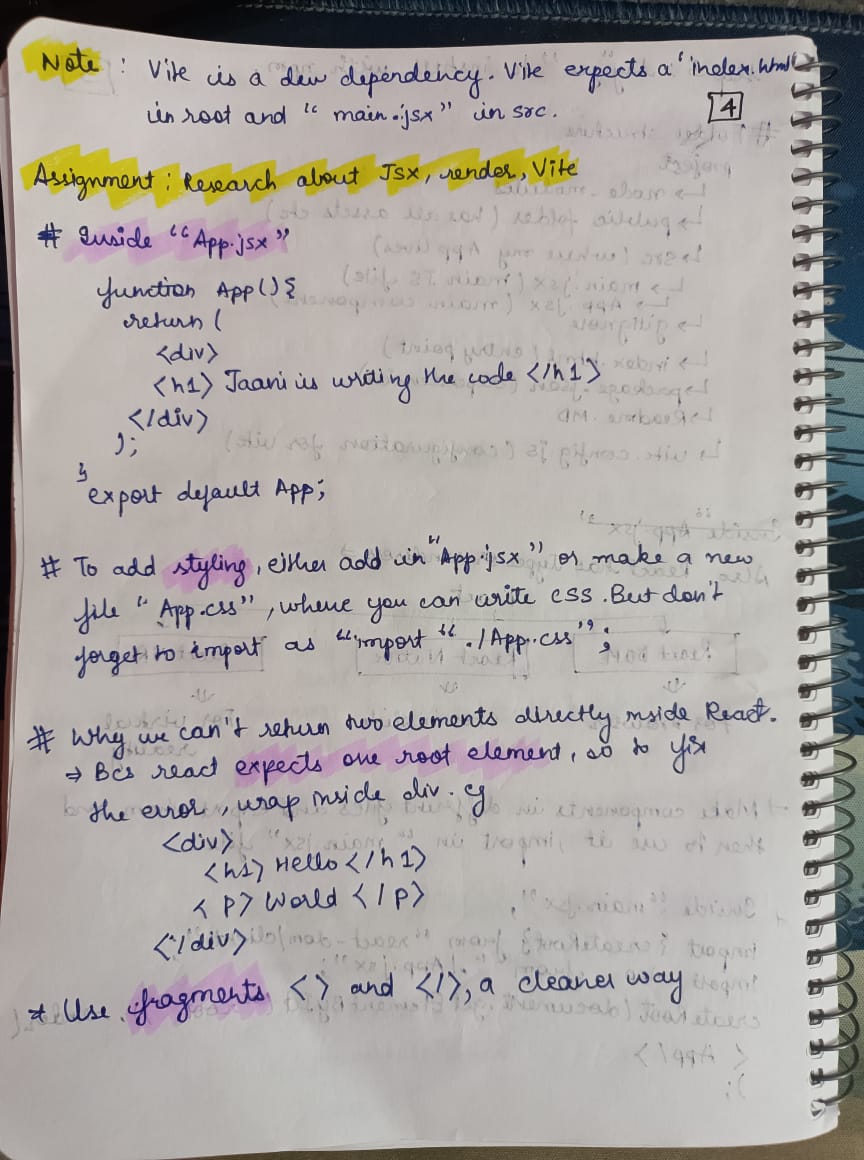 Note : Vite is a dev dependency. Vite expects a "index.html"
in root and "main.jsx" in src.
4
Assignment : Research about Jsx, render, Vite
# Inside "App.jsx"
function App(){
return (
<div>
<h1> Jaani is writing the code </h1>
</div>
);
}
export default App;
# To add styling, either add in "App.jsx" or make a new
file "App.css", where you can write css. But don't
forget to import as "import "./App.css";
# Why we can't return two elements directly inside React.
⇒ Bcs react expects one root element, so to fix
the error, wrap inside div. eg
<div>
<h1> Hello </h1>
<p> World </p>
</div>
* Use fragments <> and </>, a cleaner way